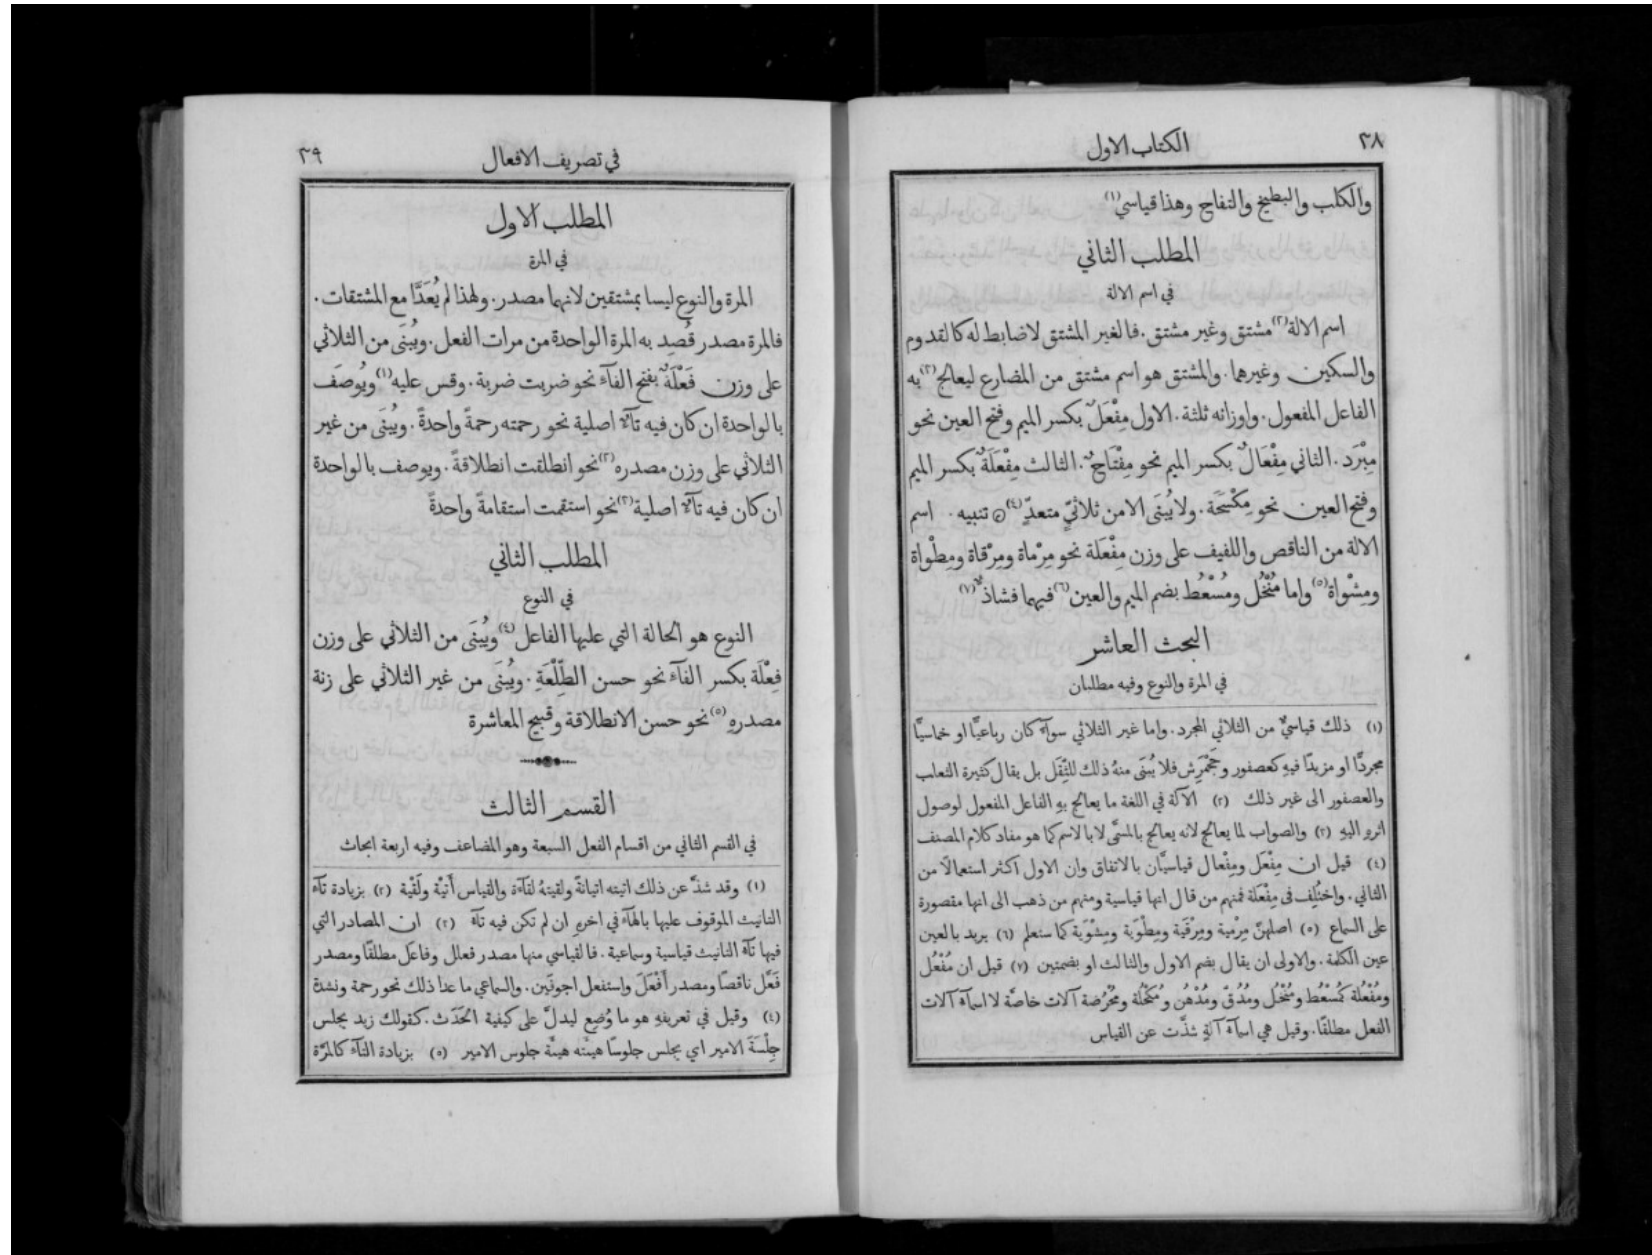 ٣٨
الكتاب الاول
والكلب والبطيخ والتفاح وهذا قياسي(١)
المطلب الثاني
في اسم الالة
اسم الالة(٢) مشتق وغير مشتق. فالغير المشتق لاضابط له كالقدوم
والسكين وغيرهما. والمشتق هو اسم مشتق من المضارع ليعالج(٣) به
الفاعل المفعول. واوزانه ثلثة. الاول مِفْعَلٌ بكسر الميم وفتح العين نحو
مِبْرَد. الثاني مِفْعَالٌ بكسر الميم نحو مِفْتَاحٌ. الثالث مِفْعَلَةٌ بكسر الميم
وفتح العين نحو مِكْسَحَة. ولا يُبنَى الامن ثلاثيٍّ متعدٍّ(٤) تنبيه. اسم
الالة من الناقص واللفيف على وزن مِفْعَلة نحو مِرْماة ومِرْقاة ومِطْواة
ومِشْواة(٥) واما مُنْخُل ومُسْعُط بضم الميم والعين(٦) فيهما فشاذٌّ(٧)
البحث العاشر
في المرة والنوع وفيه مطلبان
(١) ذلك قياسيٌّ من الثلاثي المجرد. واما غير الثلاثي سوآءٌ كان رباعيًّا او خماسيًّا
مجردًا او مزيدًا فيهِ كعصفور وجَحْمَرِش فلا يُبنَى منهُ ذلك للثِّقَل بل يقال كثيرة الثعلب
والعصفور الى غير ذلك (٢) الآلة في اللغة ما يعالج بهِ الفاعل المفعول لوصول
اثرهِ اليهِ (٣) والصواب لما يعالج لانه يعالج بالمسمَّى لابالاسم كما هو مفاد كلام المصنف
(٤) قيل ان مِفْعَل ومِفْعال قياسيَّان بالاتفاق وان الاول اكثر استعمالًا من
الثاني. واختُلِف في مِفْعَلة فمنهم من قال انها قياسية ومنهم من ذهب الى انها مقصورة
على السماع (٥) اصلهنَّ مِرْمية ومِرْقَية ومِطْوَية ومِشْوَية كما ستعلم (٦) يريد بالعين
عين الكلمة. والاولى ان يقال بضم الاول والثالث او بضمتين (٧) قيل ان مُفْعُل
ومُفْعُلة كمُسْعُط ومُنْخُل ومُدُقّ ومُدْهُن ومُكْحُلة ومُحْرُضة آلات خاصَّة لا اسمآء آلات
الفعل مطلقًا. وقيل هي اسمآء آلةٍ شذَّت عن القياس
في تصريف الافعال
٣٩
المطلب الاول
في المرة
المرة والنوع ليسا بمشتقين لانهما مصدر. ولهذا لم يُعَدَّا مع المشتقات.
فالمرة مصدر قُصِد به المرة الواحدة من مرات الفعل. ويُبنَى من الثلاثي
على وزن فَعْلَةٌ بفتح الفآء نحو ضربت ضربة. وقس عليه(١) ويُوصَف
بالواحدة ان كان فيه تآءٌ اصلية نحو رحمته رحمةً واحدةً. ويُبنَى من غير
الثلاثي على وزن مصدره(٢) نحو انطلقت انطلاقةً. ويوصف بالواحدة
ان كان فيه تآءٌ اصلية(٣) نحو استقمت استقامةً واحدةً
المطلب الثاني
في النوع
النوع هو الحالة التي عليها الفاعل(٤) ويُبنَى من الثلاثي على وزن
فِعْلَة بكسر الفآء نحو حسن الطِّلْعَةِ. ويُبنَى من غير الثلاثي على زنة
مصدرهِ(٥) نحو حسن الانطلاقة وقبيح المعاشرة
القسم الثالث
في القسم الثاني من اقسام الفعل السبعة وهو المضاعف وفيه اربعة ابحاث
(١) وقد شذَّ عن ذلك اتيته اتيانةً ولقيتهُ لقآءَة والقياس أَتْيَة ولَقْيَة (٢) بزيادة تآء
التانيث الموقوف عليها بالهآء في اخرهِ ان لم تكن فيه تآء (٣) ان المصادر التي
فيها تآء التانيث قياسية وسماعية. فالقياسي منها مصدر فعلل وفاعَل مطلقًا ومصدر
فَعَّل ناقصًا ومصدر أَفْعَلَ واستفعل اجوفَين. والسماعي ما عدا ذلك نحو رحمة ونشدة
(٤) وقيل في تعريفهِ هو ما وُضِع ليدلَّ على كيفية الحَدَث. كقولك زيد يجلس
جِلْسَةَ الامير اي يجلس جلوسًا هيئته هيئة جلوس الامير (٥) بزيادة التآء كالمرَّة